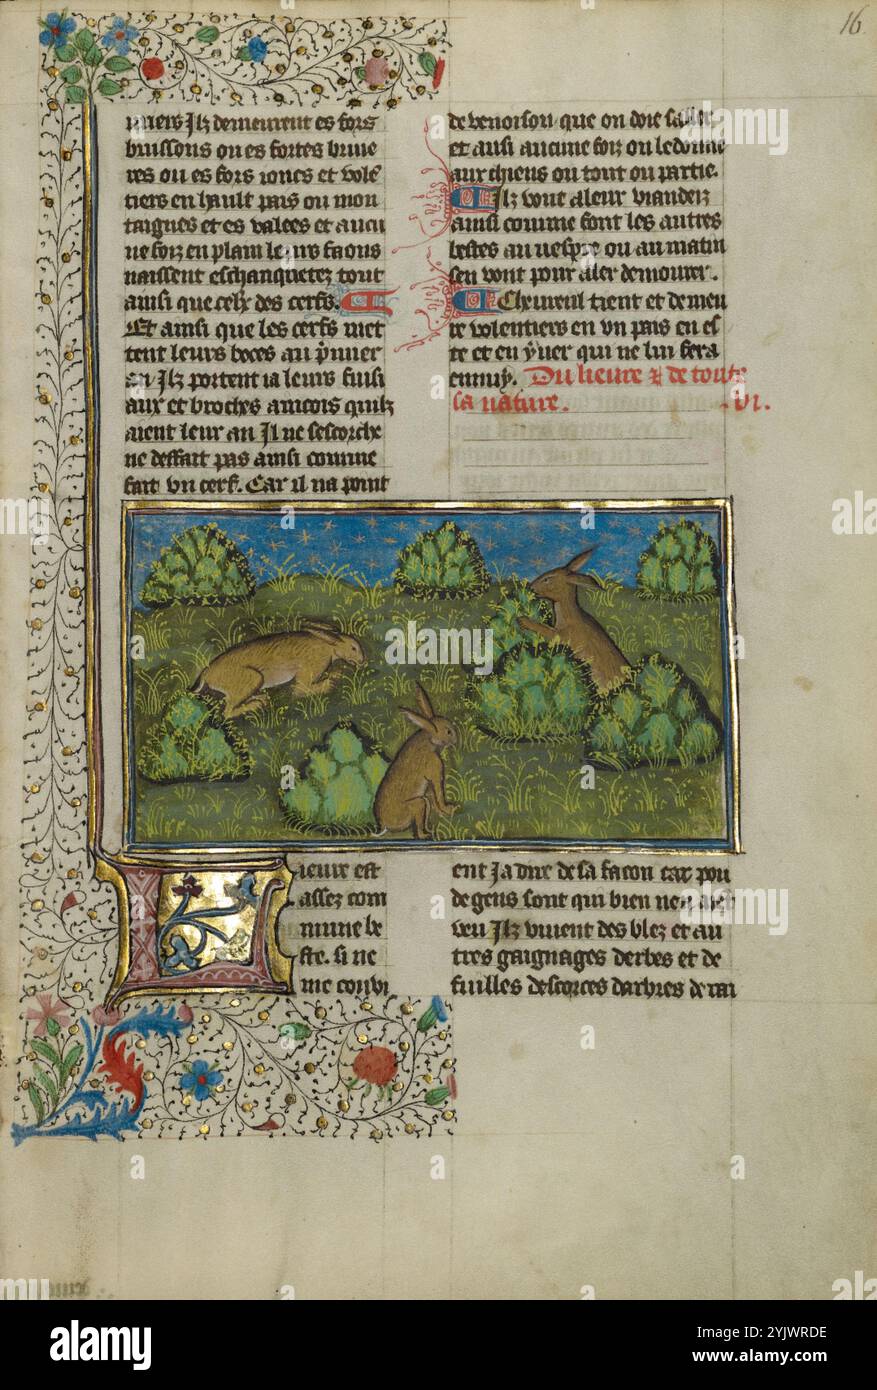 16
niers Ilz demeurent es fors
buissons ou es fortes bruie
res ou es fors ioncs et volē
tiers en hault pais ou mon
taignes et es valees et aucu
ne foiz en plain leurs faons
naissent eschanquetez tout
ainsi que celx des cerfs.
Et ainsi que les cerfs met
tent leurs boces au p̄mier
an. Ilz portent ia leurs fuisi
aux et broches aincois quilz
aient leur an Il ne sescorche
ne deffait pas ainsi comme
fait vn cerf. Car il na point
de venoison que on doie saller
et ausi aucune foiz on le donne
aux chiens ou tout ou partie.
Ilz vont a leur viandeiz
ainsi comme font les autres
bestes au uespre ou au matin
sen vont pour aler demourer.
Cheureul tient et demeu
re volentiers en vn pais en es
te et en yuer qui ne lui fera
ennuy. Du lieure & de toute
sa nature. .vi.
Lieure est
assez com
mune be
ste. si ne
me conui
ent Ja dire de sa facon car pou
de gens sont qui bien nen aiet
veu Ilz viuent des blez et au
tres gaignages derbes et de
fuilles descorces darbres de rai
alamy
Image ID: 2YJWRDE
www.alamy.com